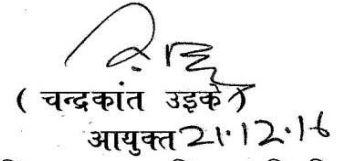 ( चन्द्रकांत उइके )
आयुक्त 21.12.16